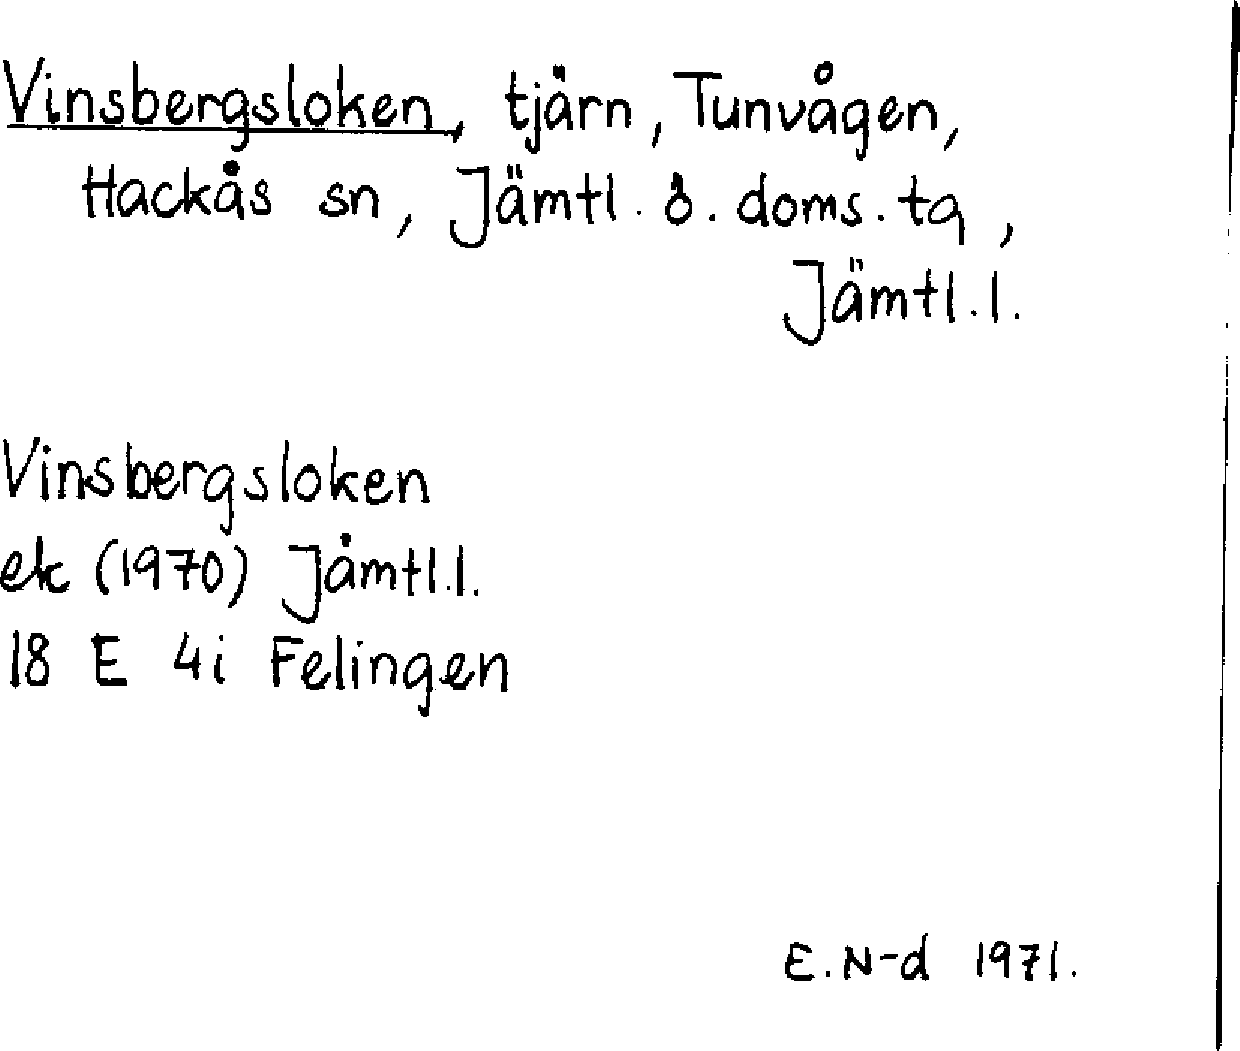 Vinsbergsloken, tjärn, Tunvågen,
Hackås sn, Jämtl. ö. doms. tg,
Jämtl. l.
Vinsbergsloken
ek (1970) Jämtl. l.
18 E 4i Felingen
E. N-d 1971.